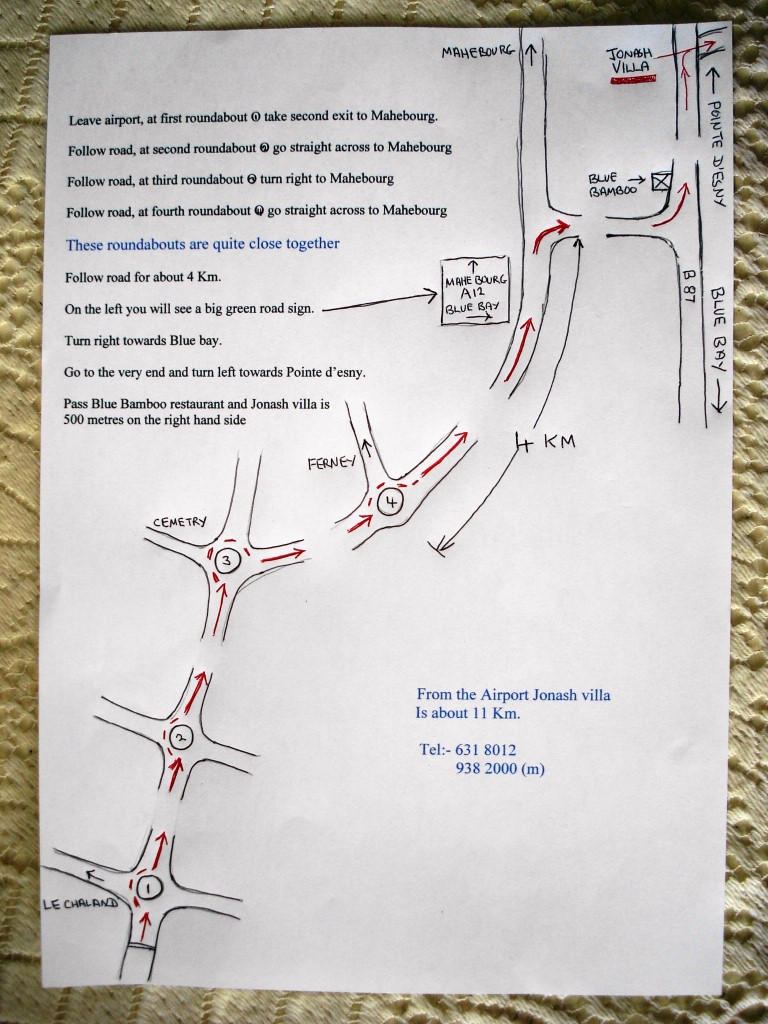 MAHEBOURG
JONASH
VILLA
POINTE D'ESNY
Leave airport, at first roundabout ① take second exit to Mahebourg.
Follow road, at second roundabout ② go straight across to Mahebourg
Follow road, at third roundabout ③ turn right to Mahebourg
Follow road, at fourth roundabout ④ go straight across to Mahebourg
BLUE
BAMBOO
These roundabouts are quite close together
Follow road for about 4 Km.
MAHEBOURG
A12
BLUE BAY
B 87
BLUE BAY
On the left you will see a big green road sign.
Turn right towards Blue bay.
Go to the very end and turn left towards Pointe d'esny.
Pass Blue Bamboo restaurant and Jonash villa is
500 metres on the right hand side
4 KM
FERNEY
4
CEMETRY
3
From the Airport Jonash villa
Is about 11 Km.
2
Tel:- 631 8012
938 2000 (m)
1
LE CHALAND